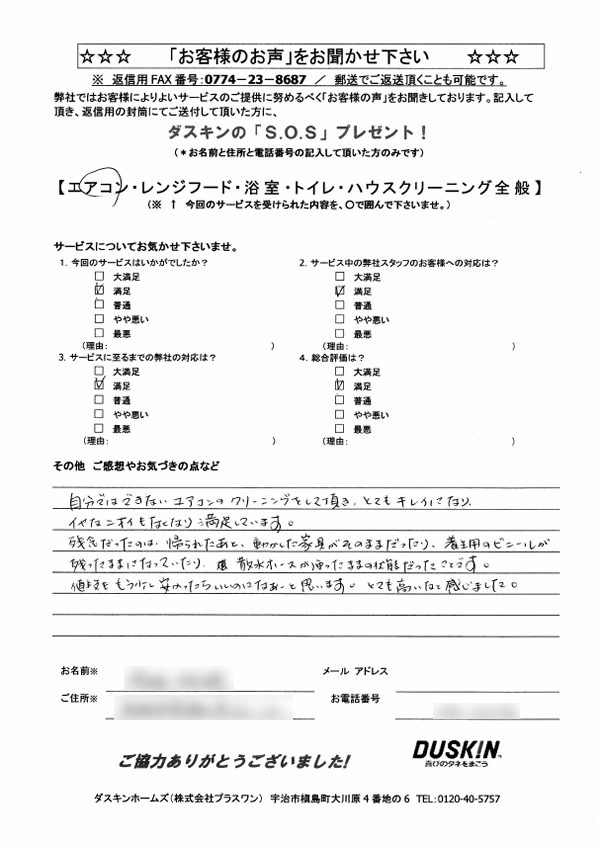 ☆☆☆ 「お客様のお声」をお聞かせ下さい ☆☆☆
※ 返信用FAX番号:0774-23-8687 / 郵送でご返送頂くことも可能です。
弊社ではお客様によりよいサービスのご提供に努めるべく「お客様の声」をお聞きしております。記入して
頂き、返信用の封筒にてご送付して頂いた方に、
ダスキンの「S.O.S」プレゼント!
(*お名前と住所と電話番号の記入して頂いた方のみです)
【エアコン・レンジフード・浴室・トイレ・ハウスクリーニング全般】
(※ ↑ 今回のサービスを受けられた内容を、〇で囲んで下さいませ。)
サービスについてお気かせ下さいませ。
1. 今回のサービスはいかがでしたか?
□ 大満足
☑ 満足
□ 普通
□ やや悪い
□ 最悪
(理由: )
2. サービス中の弊社スタッフのお客様への対応は?
□ 大満足
☑ 満足
□ 普通
□ やや悪い
□ 最悪
(理由: )
3. サービスに至るまでの弊社の対応は?
□ 大満足
☑ 満足
□ 普通
□ やや悪い
□ 最悪
(理由: )
4. 総合評価は?
□ 大満足
☑ 満足
□ 普通
□ やや悪い
□ 最悪
(理由: )
その他 ご感想やお気づきの点など
自分ではできないエアコンのクリーニングをして頂き、とてもキレイになり、
イヤなニオイもなくなり満足しています。
残念だったのは、帰られたあと、動かした家具がそのままだったり、養生用のビニールが
残ったままになっていたり、散水ホースが通ったままの状態だったことです。
値段をもう少し安かったらいいのになあーと思います。とても高いなと感じました。
お名前※
メール アドレス
ご住所※
お電話番号
ご協力ありがとうございました!
DUSKIN
喜びのタネをまこう
ダスキンホームズ(株式会社プラスワン) 宇治市槇島町大川原4番地の6 TEL:0120-40-5757